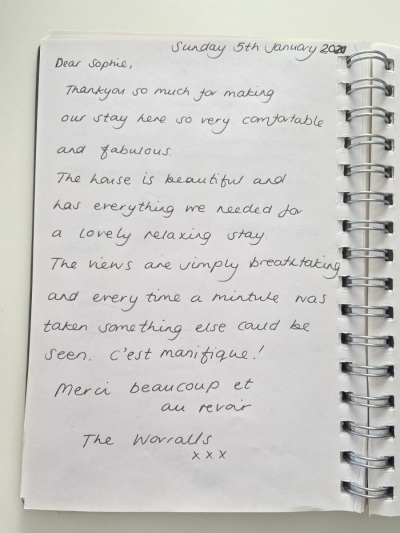 Sunday 5th January 2020
Dear Sophie,
Thankyou so much for making
our stay here so very comfortable
and fabulous.
The house is beautiful and
has everything we needed for
a lovely relaxing stay.
The views are simply breathtaking
and every time a mintute was
taken something else could be
seen. C'est manifique!
Merci beaucoup et
au revoir
The Worralls
x x x